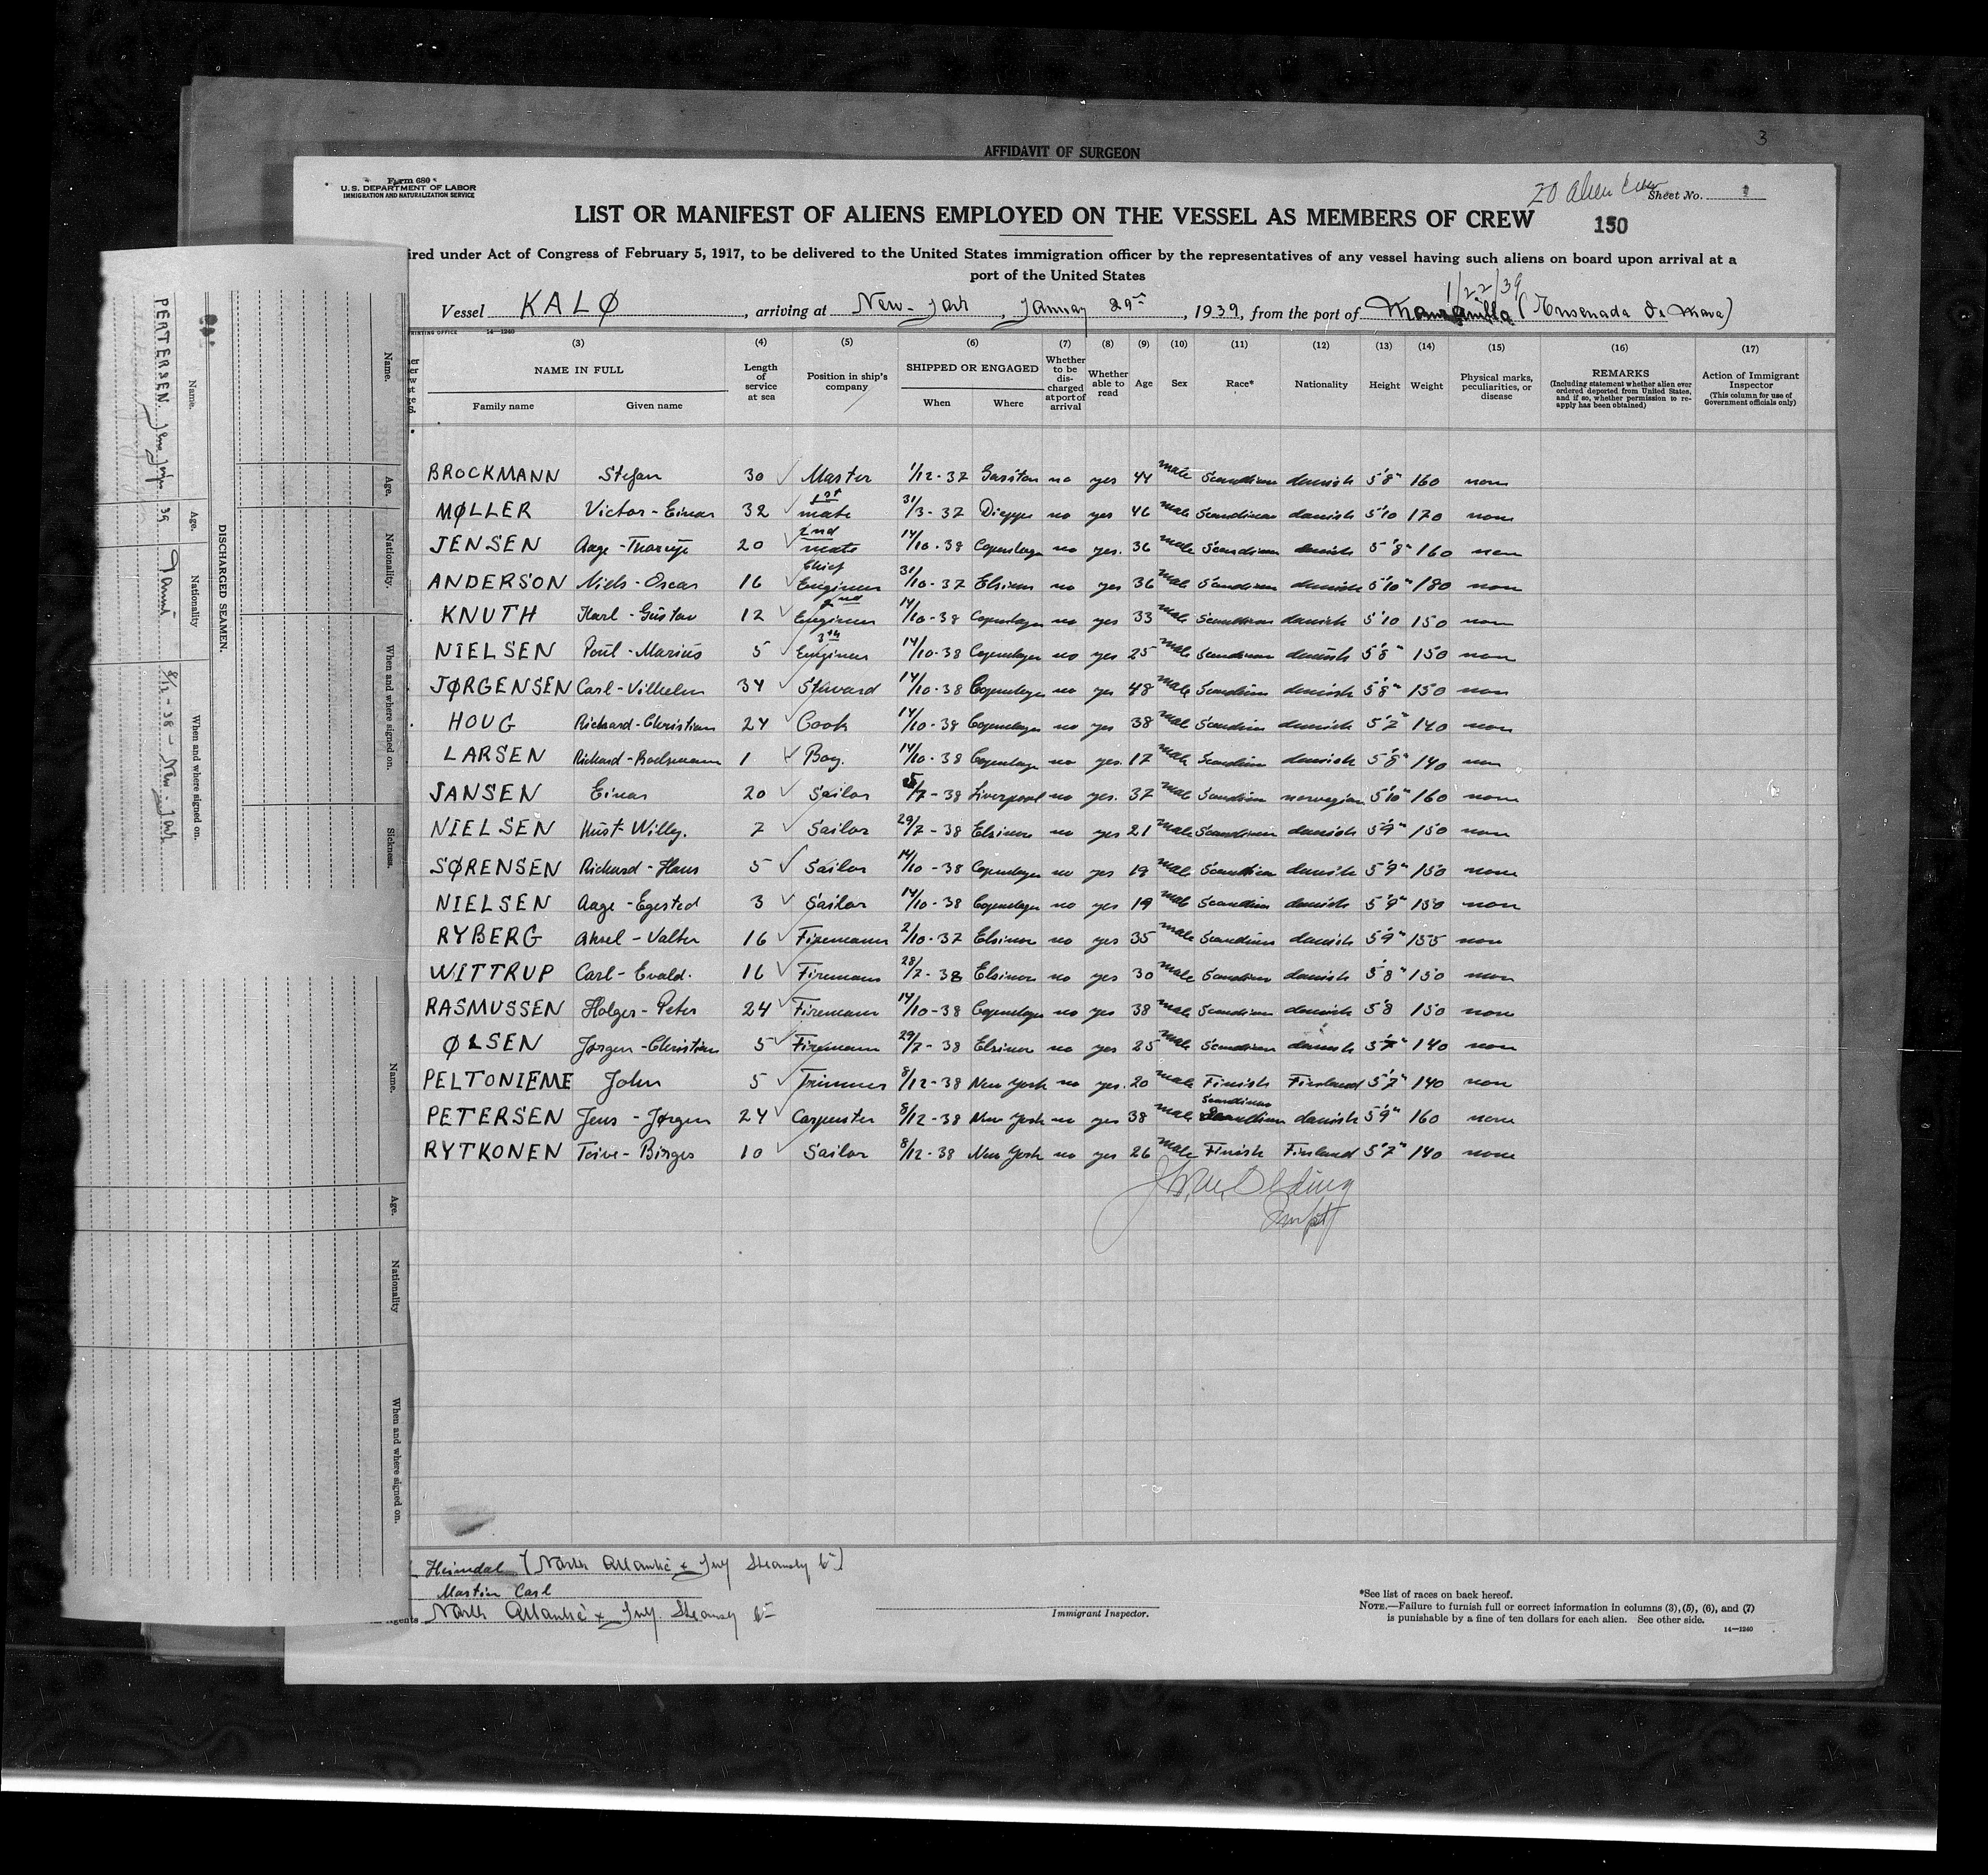 3
AFFIDAVIT OF SURGEON
Form 680
U. S. DEPARTMENT OF LABOR
IMMIGRATION AND NATURALIZATION SERVICE
20 alien crew
Sheet No. 1
LIST OR MANIFEST OF ALIENS EMPLOYED ON THE VESSEL AS MEMBERS OF CREW
150
ired under Act of Congress of February 5, 1917, to be delivered to the United States immigration officer by the representatives of any vessel having such aliens on board upon arrival at a
port of the United States
1/22/39
Vessel KALØ, arriving at New-York, January 1939, from the port of Manzanilla (Ensenada de Mora)
PRINTING OFFICE 14-1240
(3) (4) (5) (6) (7) (8) (9) (10) (11) (12) (13) (14) (15) (16) (17)
NAME IN FULL
Family name Given name
Length of service at sea
Position in ship's company
SHIPPED OR ENGAGED
When Where
Whether to be discharged at port of arrival
Whether able to read
Age
Sex
Race*
Nationality
Height
Weight
Physical marks, peculiarities, or disease
REMARKS
(Including statement whether alien ever ordered deported from United States, and if so, whether permission to reapply has been obtained)
Action of Immigrant Inspector
(This column for use of Government officials only)
BROCKMANN Stefan 30 Master 1/12-37 no yes 44 male danish 5'8" 160
MØLLER Victor-Einar 32 1st mate 31/3-37 Dieppe no yes 46 male danish 5'10 170
JENSEN 20 2nd mate 14/10-38 no yes. 36 male danish 5'8" 160
ANDERSON Niels-Oscar 16 Chief Engineer 31/10-37 Elsinor no yes 36 male danish 5'10" 180
KNUTH Karl-Gustav 12 2nd Engineer 14/10-38 Copenhagen no yes 33 male danish 5'10 150
NIELSEN Poul-Marius 5 3th Engineer 14/10-38 Copenhagen no yes 25 male danish 5'8" 150
JØRGENSEN Carl-Vilhelm 34 Stuvard 14/10-38 Copenhagen no yes 48 male danish 5'8" 150
HOUG Richard-Christian 24 Cook 14/10-38 Copenhagen no yes 38 male danish 5'7" 140
LARSEN 1 Boy. 14/10-38 Copenhagen no yes. 17 male danish 5'8" 140
JANSEN Einar 20 Sailor 5/7-38 Liverpool no yes. 37 male norwegian 5'10" 160
NIELSEN Willy. 7 Sailor 29/7-38 Elsinor no yes 21 male danish 5'9" 150
SØRENSEN Richard-Hans 5 Sailor 14/10-38 Copenhagen no yes 19 male danish 5'9" 150
NIELSEN Aage-Egested 3 Sailor 14/10-38 Copenhagen no yes 19 male danish 5'9" 150
RYBERG Aksel-Valter 16 Firemann 2/10-37 Elsinor no yes 35 male danish 5'9" 155
WITTRUP Carl-Evald. 16 Firemann 28/7-38 Elsinor no yes 30 male danish 5'8" 150
RASMUSSEN Holger-Peter 24 Firemann 14/10-38 Copenhagen no yes 38 male danish 5'8 150
ØLSEN Jørgen-Christian 5 Firemann 29/7-38 Elsinor no yes 25 male danish 5'7" 140
PELTONIEME John 5 Trimmer 8/12-38 New York no yes. 20 male Finish Finland 5'7" 140
PETERSEN Jens-Jørgen 24 Carpenter 8/12-38 New York no yes 38 male danish 5'9" 160
RYTKONEN Toivo-Birger 10 Sailor 8/12-38 New York no yes 26 male Finish Finland 5'7" 140 none
Heimdal
Martin Carl
Agents North Atlantic
Immigrant Inspector.
*See list of races on back hereof.
NOTE.—Failure to furnish full or correct information in columns (3), (5), (6), and (7)
is punishable by a fine of ten dollars for each alien. See other side.
14—1240
DISCHARGED SEAMEN.
Name. Age. Nationality When and where signed on.
PERTERSEN. 39 8/12-38- New-York
Name. Age. Nationality. When and where signed on. Sickness.
Name. Age. Nationality When and where signed on.